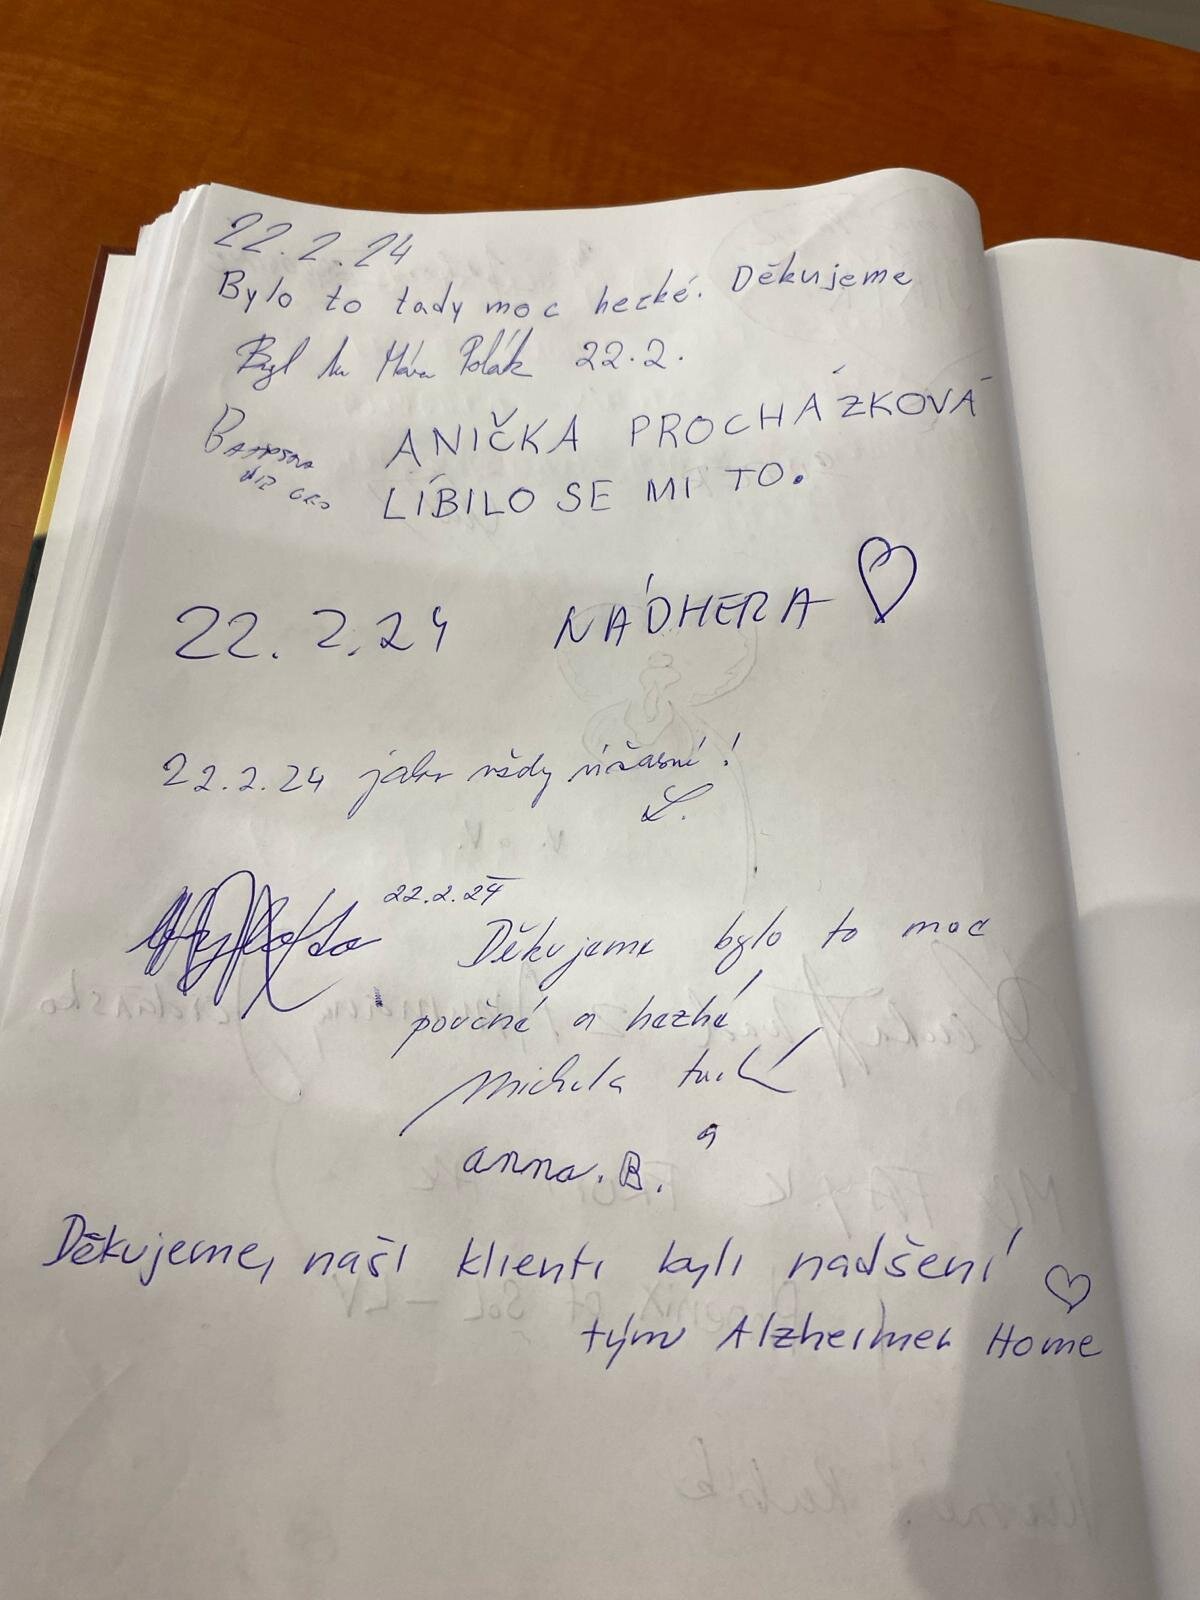 22.2.24
Bylo to tady moc hezké. Děkujeme
Byl tu Polák 22.2.
ANIČKA PROCHÁZKOVÁ
LÍBILO SE MI TO.
22.2.24 NÁDHERA
22.2.24 jako vždy úžasní!
22.2.24
Děkujeme bylo to moc
poučné a hezké
a
anna. B.
Děkujeme, naši klienti byli nadšení
tým Alzheimer Home